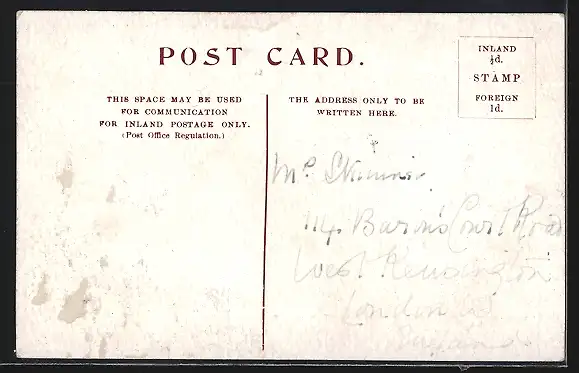 POST CARD.
INLAND
½d.
STAMP
FOREIGN
1d.
THIS SPACE MAY BE USED
FOR COMMUNICATION
FOR INLAND POSTAGE ONLY.
(Post Office Regulation.)
THE ADDRESS ONLY TO BE
WRITTEN HERE.
Skinner
114 Baron's Court Road
West Kensington
London W
England